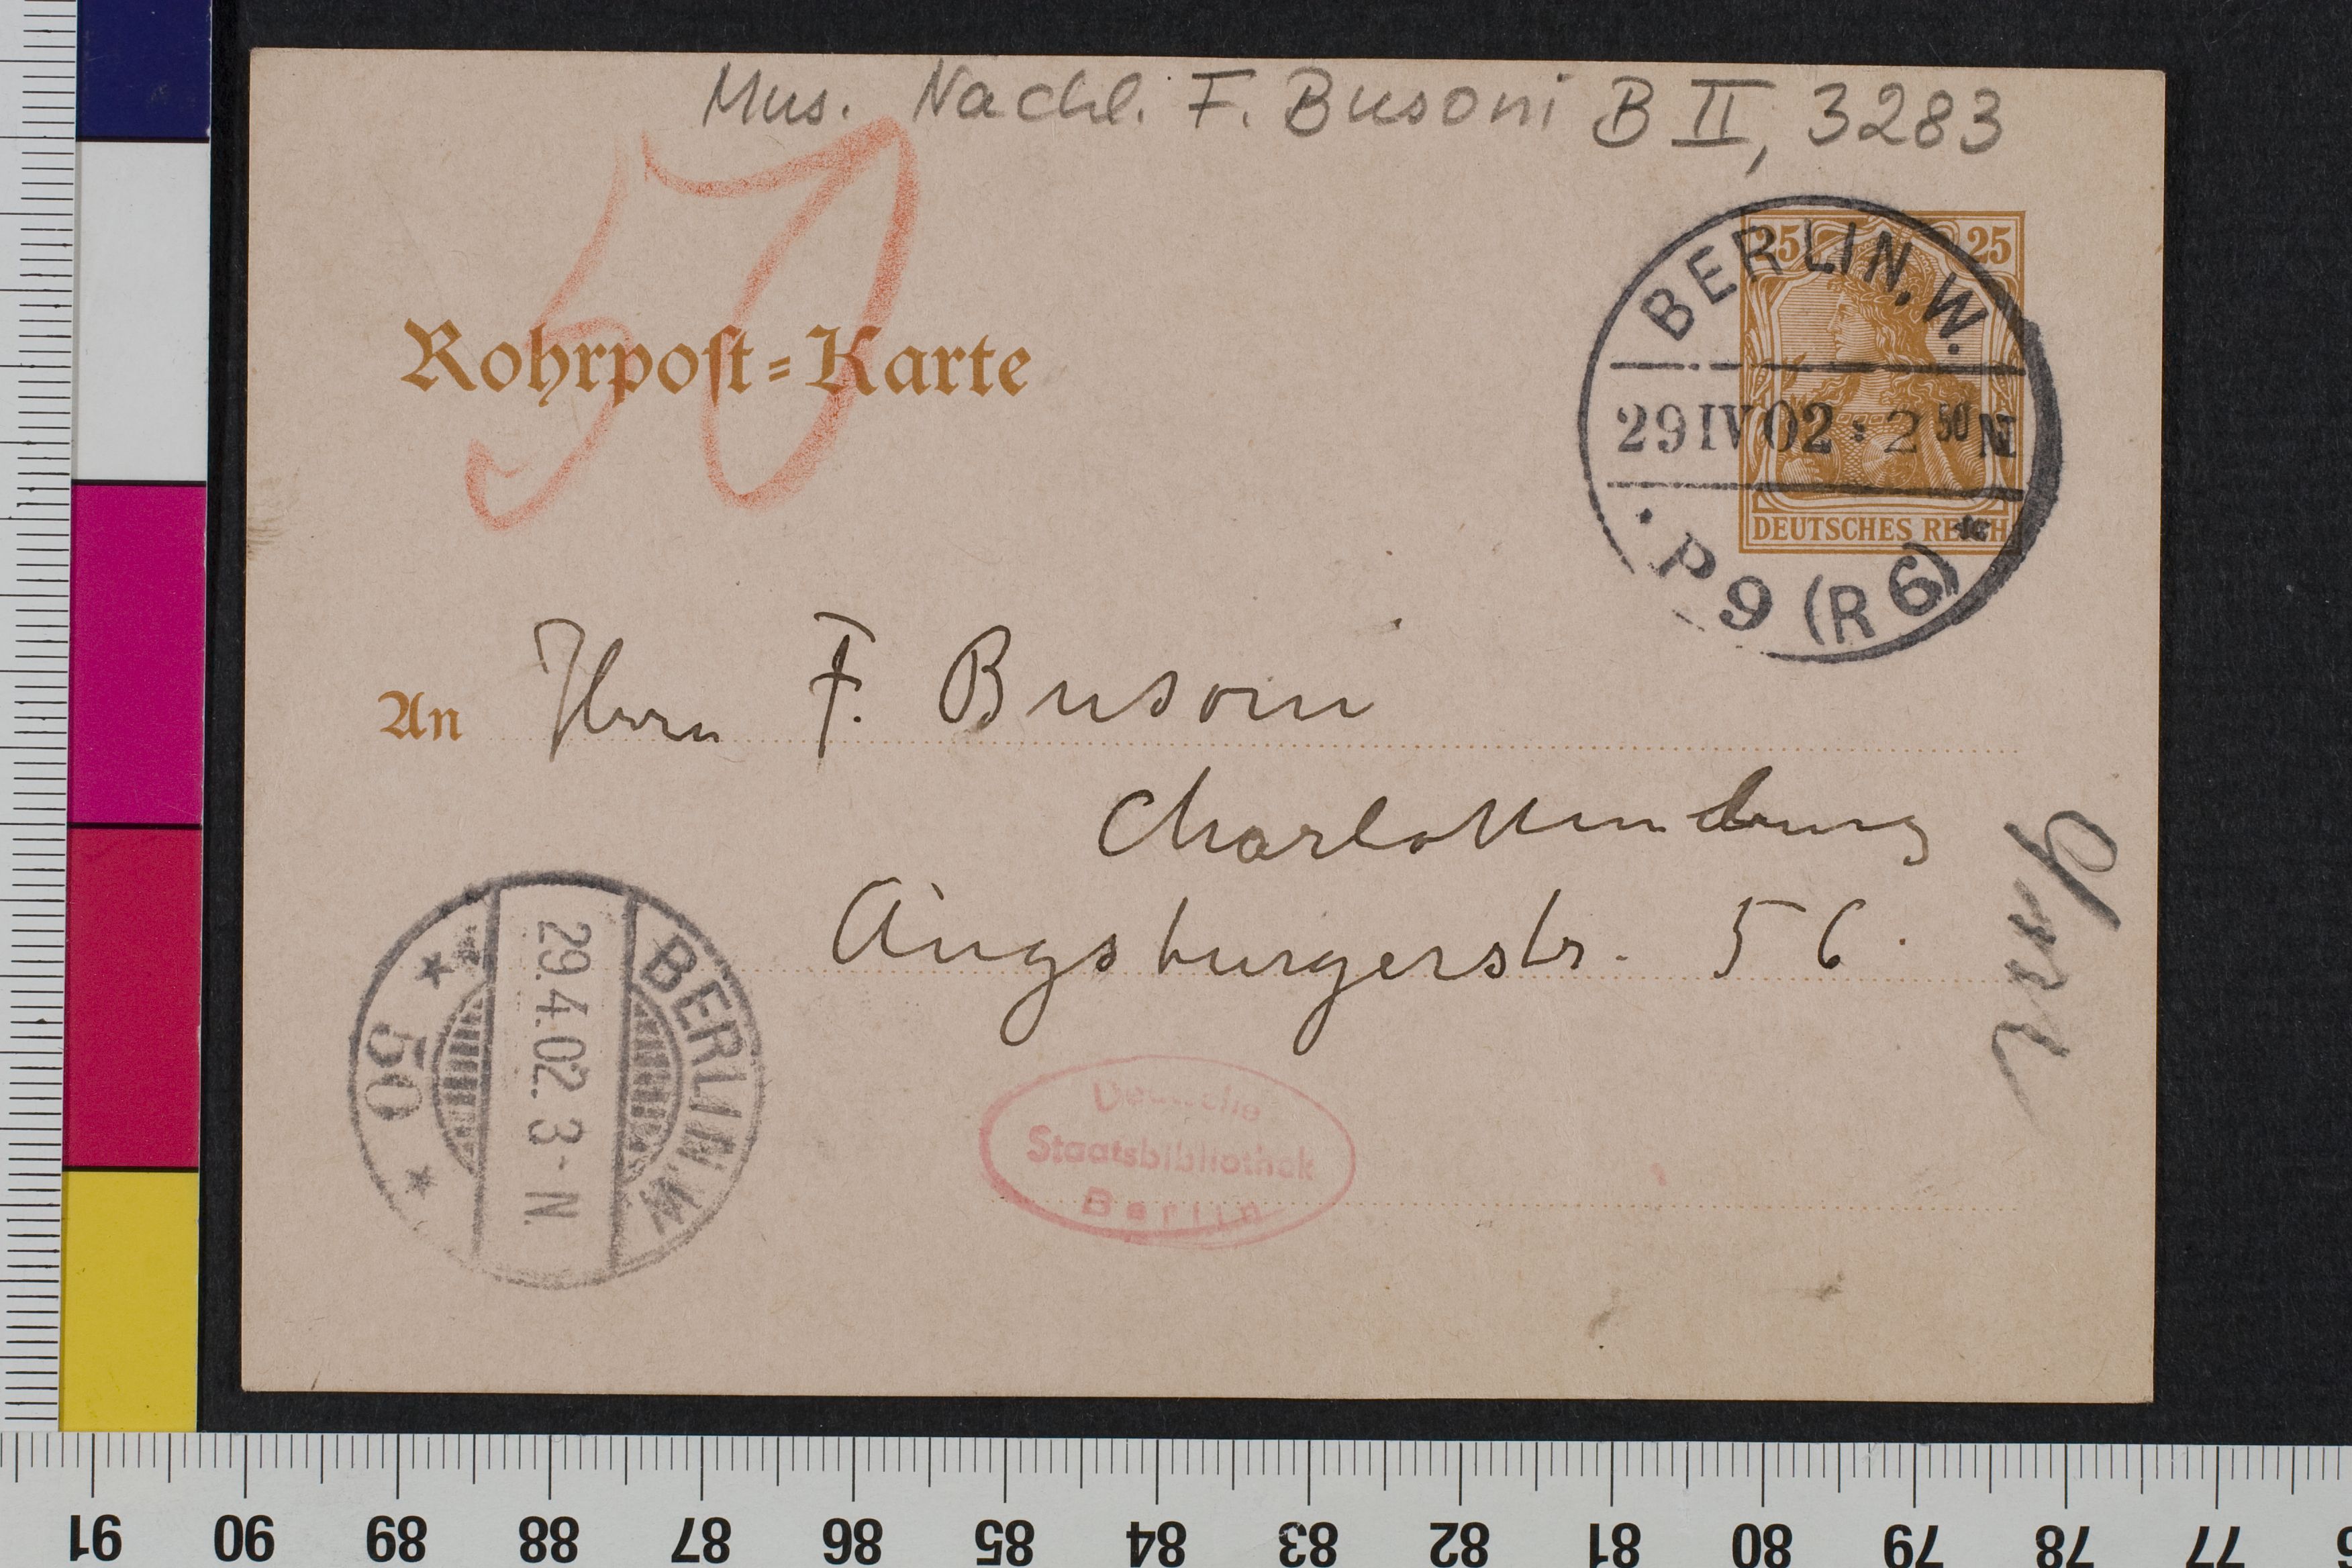 Mus. Nachl. F. Busoni B II, 3283
50
Rohrpost-Karte
25 25
DEUTSCHES REICH
BERLIN. W.
29 IV 02 : 2 50 N
P 9 (R 6) *
An Herrn F. Busoni
Charlottenburg
Augsburgerstr. 56.
BERLIN.W
29.4.02. 3-N.
50
Deutsche
Staatsbibliothek
Berlin
91 90 89 88 87 86 85 84 83 82 81 80 79 78 77